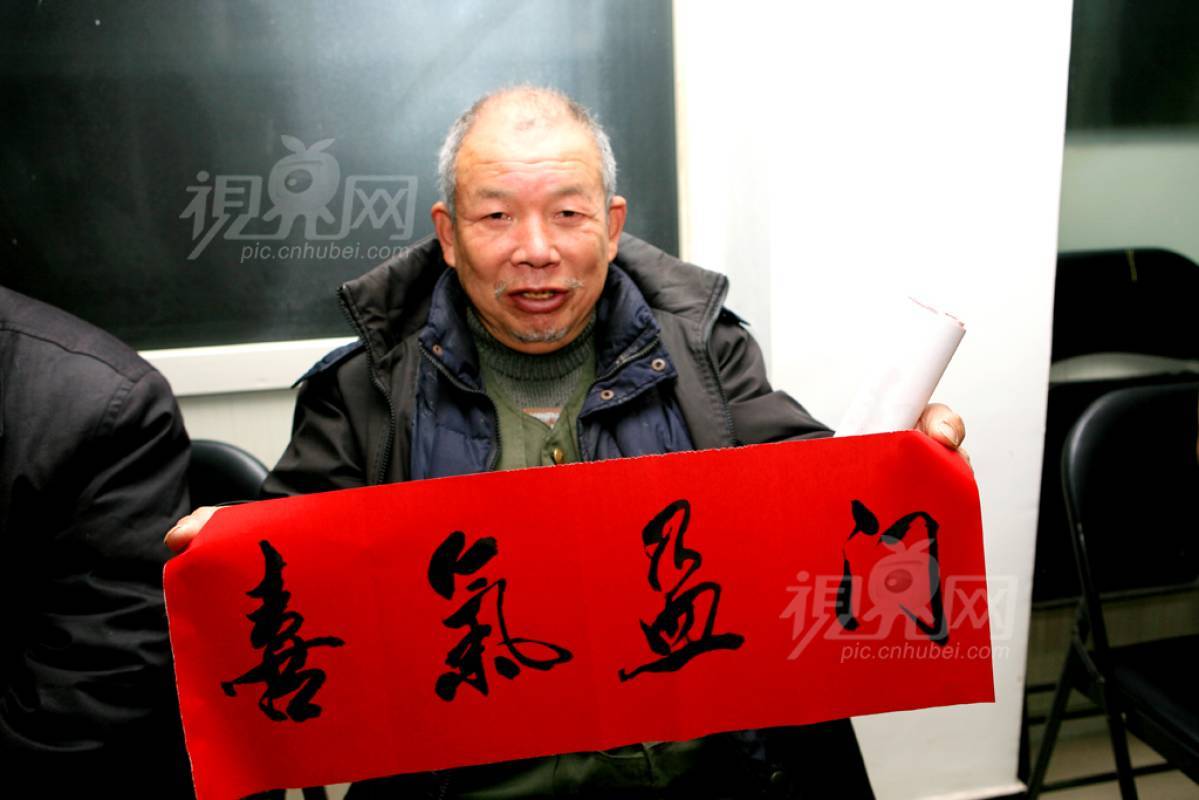 視界网
pic.cnhubei.com
喜氣盈门
視界网
pic.cnhubei.com